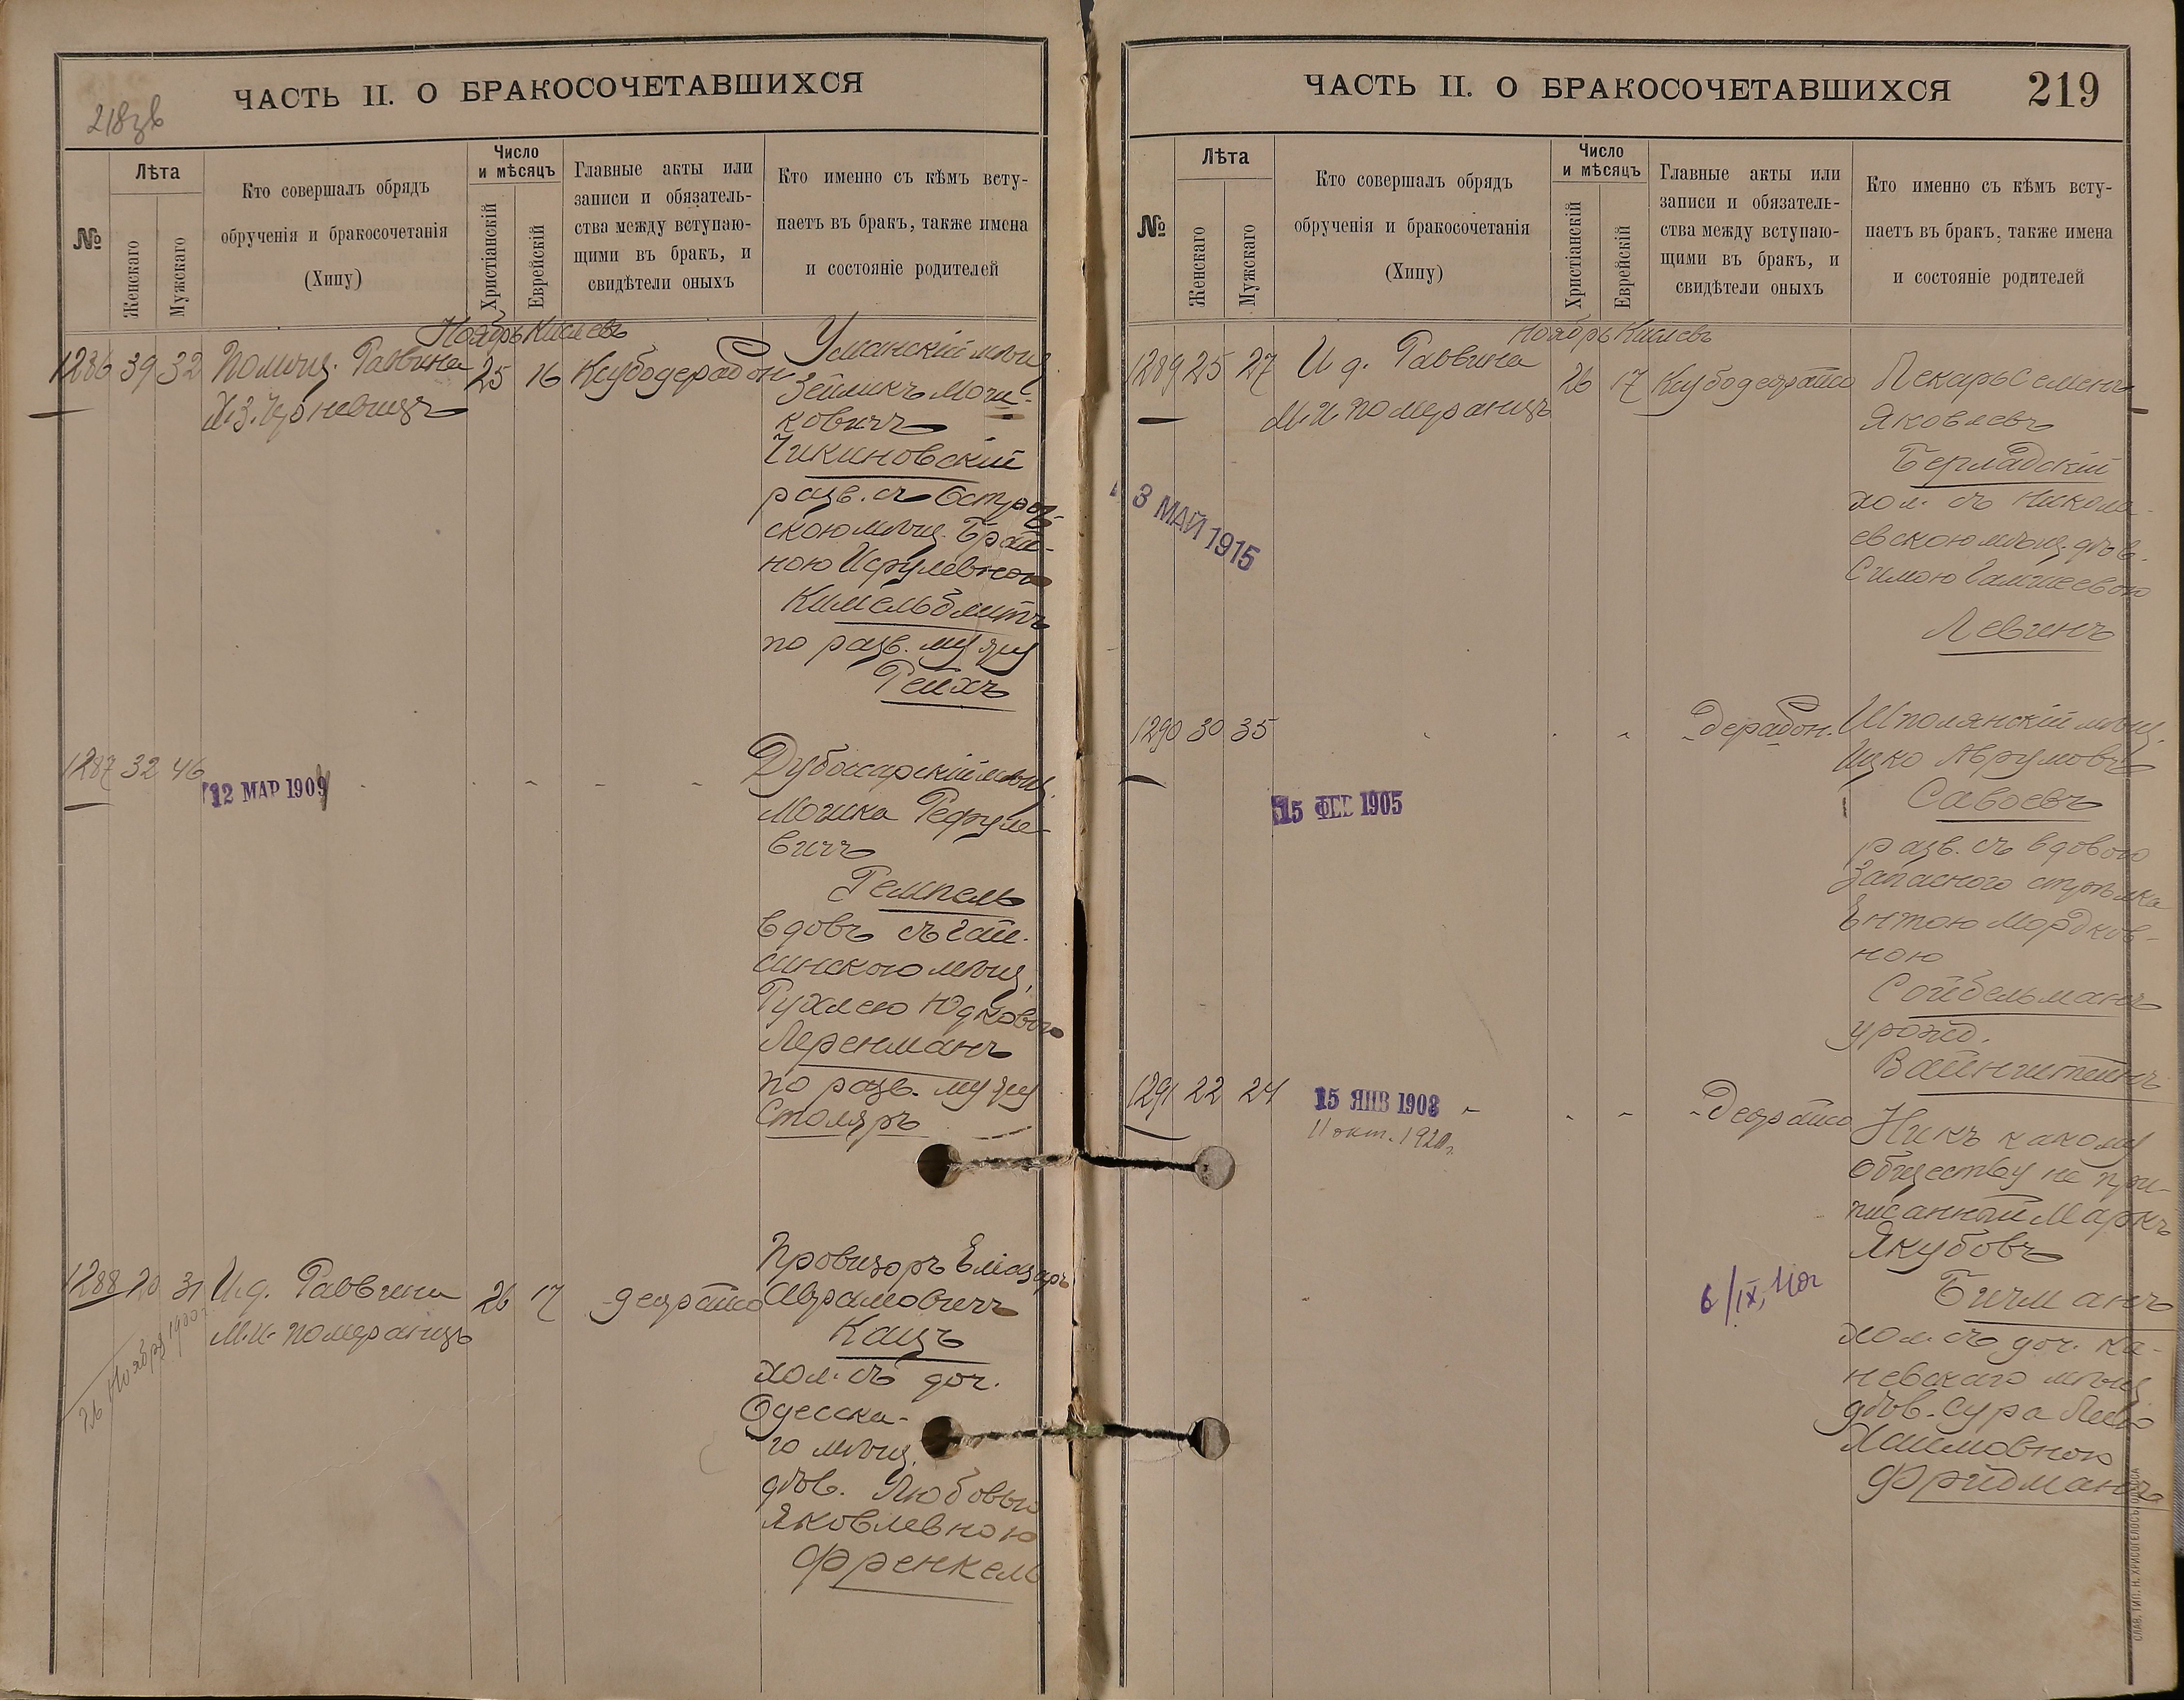 ЧАСТЬ II. О БРАКОСОЧЕТАВШИХСЯ
218зв
№
Лѣта
Женскаго
Мужскаго
Кто совершалъ обрядъ
обрученія и бракосочетанія
(Хипу)
Число
и мѣсяцъ
Христіанскій
Еврейскій
Главные акты или
записи и обязатель-
ства между вступаю-
щими въ бракъ, и
свидѣтели оныхъ
Кто именно съ кѣмъ всту-
паетъ въ бракъ, также имена
и состояніе родителей
Ноябрь Кислевъ
1286 39 32 Помощ. Раввина 25 16
Уманскій мѣщ.
Зейликъ Мош-
ковичъ
Чикиновскій
разв. съ Острог-
скою мѣщ. Брай-
ною Исрулевною
Кимельблитъ
по разв. мужу
Рейхъ
1287 32 46
12 МАР 1909
Дубоссарскій мѣщ.
Мошка
вичъ
Гемпель
вдовъ съ Гай-
синскою мѣщ.
Рухлею Юдковою
Леренманъ
по разв. мужу
Столяръ
1288 20 31 И.д. Раввина 26 17
М.И. Померанцъ
26 Ноября 1900г.
Провизоръ Еліазаръ
Абрамовичъ
Кацъ
хол. съ доч.
Одесска-
го мѣщ.
дѣв. Любовью
Яковлевною
Френкель
ЧАСТЬ II. О БРАКОСОЧЕТАВШИХСЯ
219
№
Лѣта
Женскаго
Мужскаго
Кто совершалъ обрядъ
обрученія и бракосочетанія
(Хипу)
Число
и мѣсяцъ
Христіанскій
Еврейскій
Главные акты или
записи и обязатель-
ства между вступаю-
щими въ бракъ, и
свидѣтели оныхъ
Кто именно съ кѣмъ всту-
паетъ въ бракъ, также имена
и состояніе родителей
Ноябрь Кислевъ
1289 25 27 И д. Раввина 26 17
М.И. Померанцъ
3 МАЙ 1915
Пекарь Семенъ
Яковлевъ
Берладскій
хол. съ Никола-
евскою мѣщ. дѣв.
Симою
Левинъ
1290 30 35
15 ФЕВ 1905
Шполянскій мѣщ.
Ицко Аврумовъ
Савоевъ
разв. съ вдовою
Запасного стрѣлка
Ентою Мордков-
ною
Сойбельманъ
урожд.
Вайнштейнъ
1291 22 24
15 ЯНВ 1908
11 окт. 1920г.
6/IX,
Никъ какому
обществу не при-
писанный Маркъ
Якубовъ
Бичманъ
хол. съ доч. Ка-
невскаго мѣщ.
дѣв. Сура
Хаимовною
Фридманъ
СЛАВ. ТИП. Н. ХРИСОГЕЛОСЪ, ОДЕССА